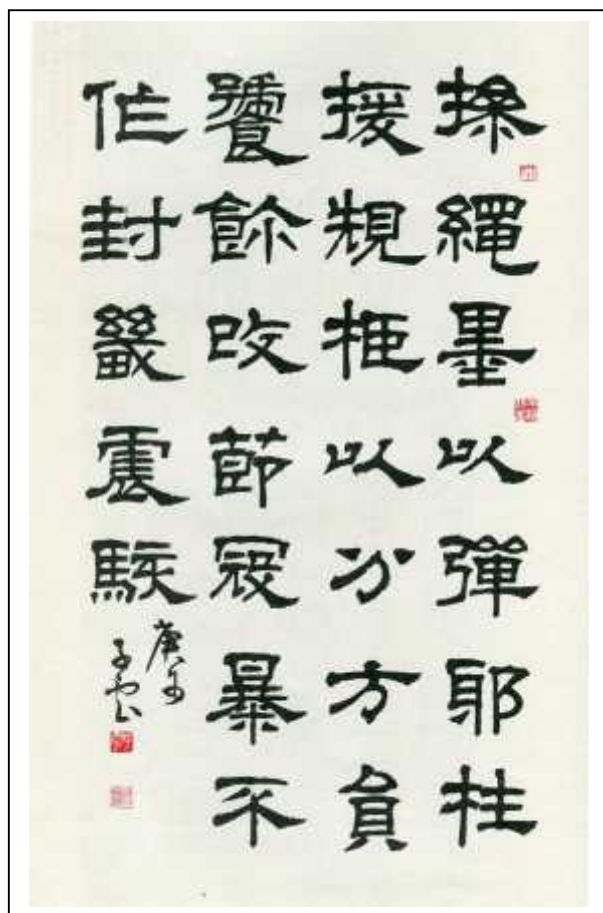 操繩墨以彈耶枉
援規柜以分方員
饕飻改節寇暴不
作封畿震駭
庚午
子雲